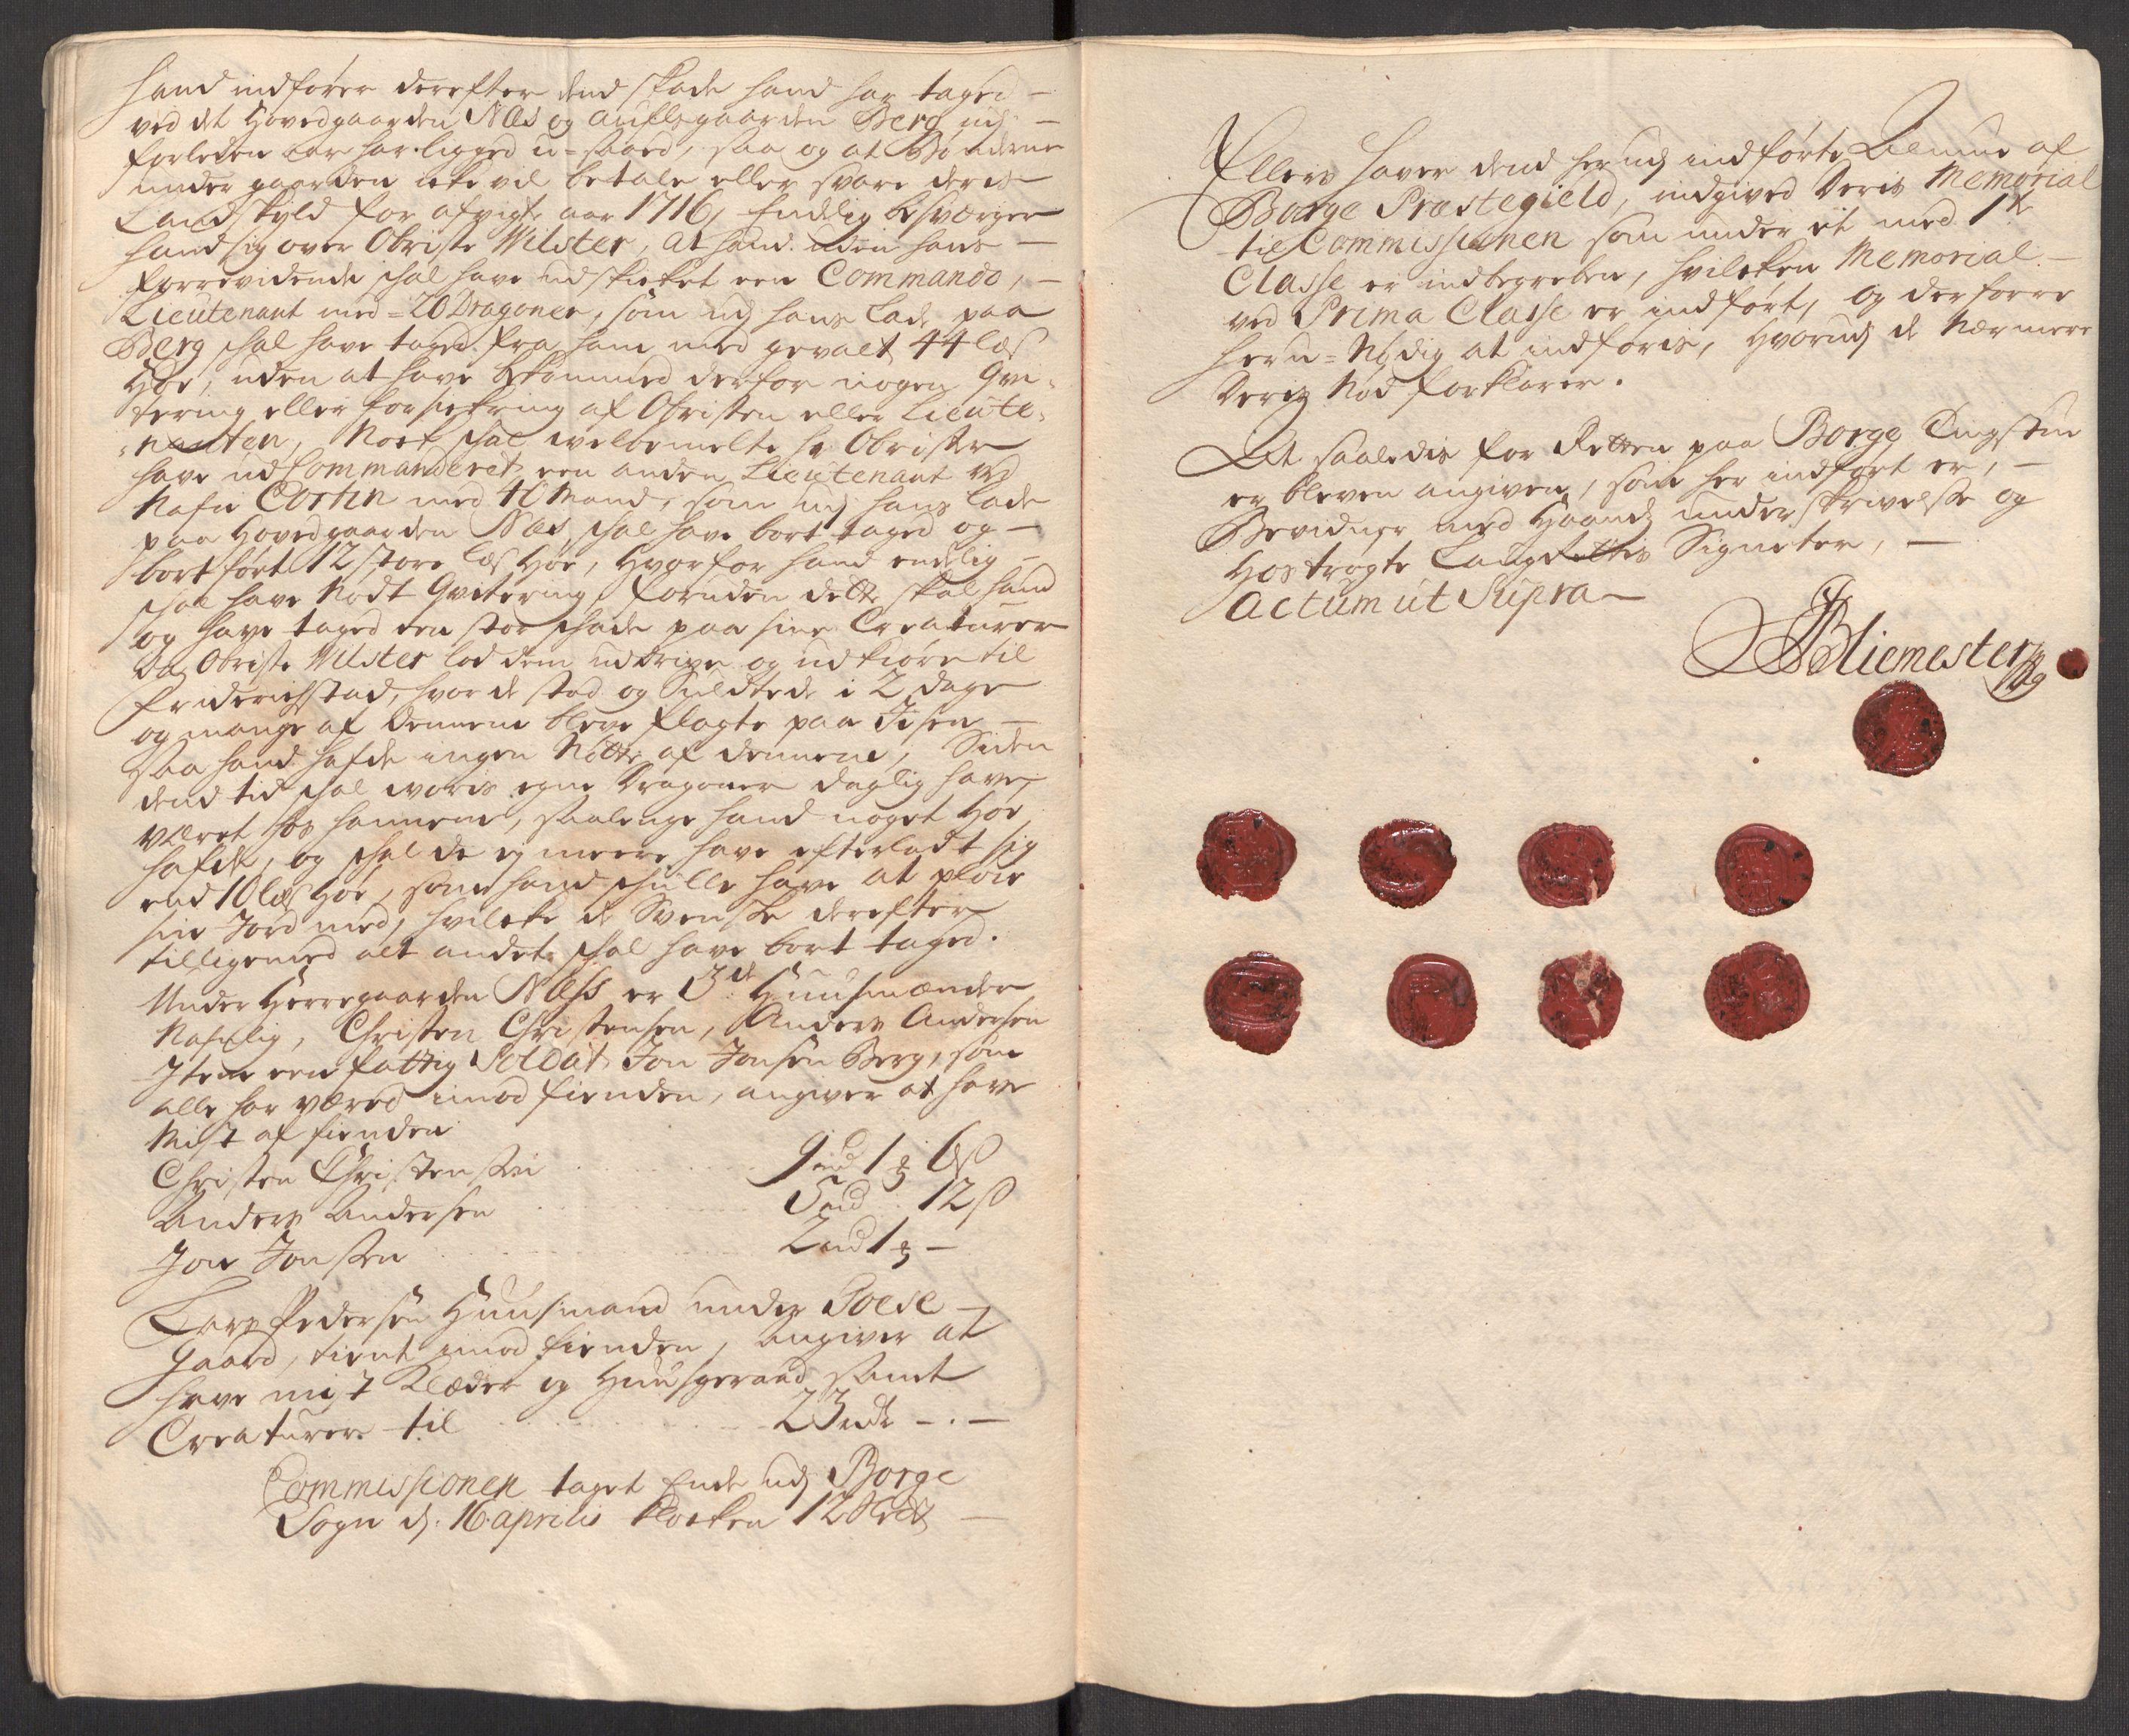 hand indfører derefter dend skade hand har taged –
ved det Hovedgaarden Næs og aufls gaarden Berg udj –
forleden aar har ligged u-saaed, saa og at Bønderne
under gaarden icke vil betale eller svare deris
Landskyld for afvigte aar 1716, Endelig besværger
hand sig over Obriste Wilster, at hand uden hans –
forrevidende schal have udskicket een Commando, –
Lieutenant med = 20 Dragoner, som udj hans Lade paa
Berg schal have taged fra ham med gevalt 44 læs
Høe, uden at have bekommed derfor nogen Qvi-
tering eller forsickring af Obristen eller Lieute-
-nanten, Noch schal welbemelte hr Obriste
have ud Commanderet een anden Lieutenant ved
Nafn Cortin med 40 Mand, som udj hans Lade
paa Hovedgaarden Næs, schal have bort taged og –
bortført 12 store læs Høe, Hvorfor hand endelig –
schal have Nødt Qvitering, foruden dette skal hand
og have taged een stor schade paa sine Creaturer
Da Obriste Wilster lod dem uddrive og udkiøre til
Friderichstad, hvor de stod og Suldtede i 2 dage
og mange af dennem bleve slagte paa Jisen –
saa hand hafde ingen Nötte af dennem, Siden
dend tid schal woris egne Dragoner daglig have
været hos hannem, saalenge hand noget Høe
hafde, og schal de ej meere have efterladt sig
end 10 læs Høe, som hand schulle have at pløie
sin Jord med, hvilcke de Svenske derefter
tilligemed alt andet schal have bort taged.
Under Herregaarden Næss er 3de Huusmænder
Nafnlig, Christen Christensen, Anders Andersen
Item een fattig Soldat Jon Jonsen Berg, som
alle har været imod fienden, angiver at have
Mist af fienden
Christen Christensen . . . . . . 9 rd 1 6 s
Anders Andersen . . . . . . 5 rd . 12 s
Jon Jonsen . . . . . . 2 rd 1 –
Lars Pedersen Huusmand under Soese –
gaard, tient imod fienden, angiver at
have mist Klæder og Huusgeraad samt
Creaturer til . . . . . . 23 rdr – . –
Commissionen taget Ende udj Borge
Sogn d. 16 aprilis klocken 12 slet –
Ellers haver dend herudj indførte Almue af
Borge Præstegield, indgived Deris Memorial
til Commissionen som under et med 1te
Classe er indbegreben, hvilcken Memorial –
ved Prima Classe er indført, og derforre
her u-Nødig at indføris, Hvorudj de Nærmere
Deris Nød forklarer.
At saaledis for Retten paa Borge Tingstue
er bleven angiven, som her indført er, –
Bevidner med Haands underskrivelse og
Hostrøgte Laugrettis Signeter, –
Actum ut Supra –
Bliemester